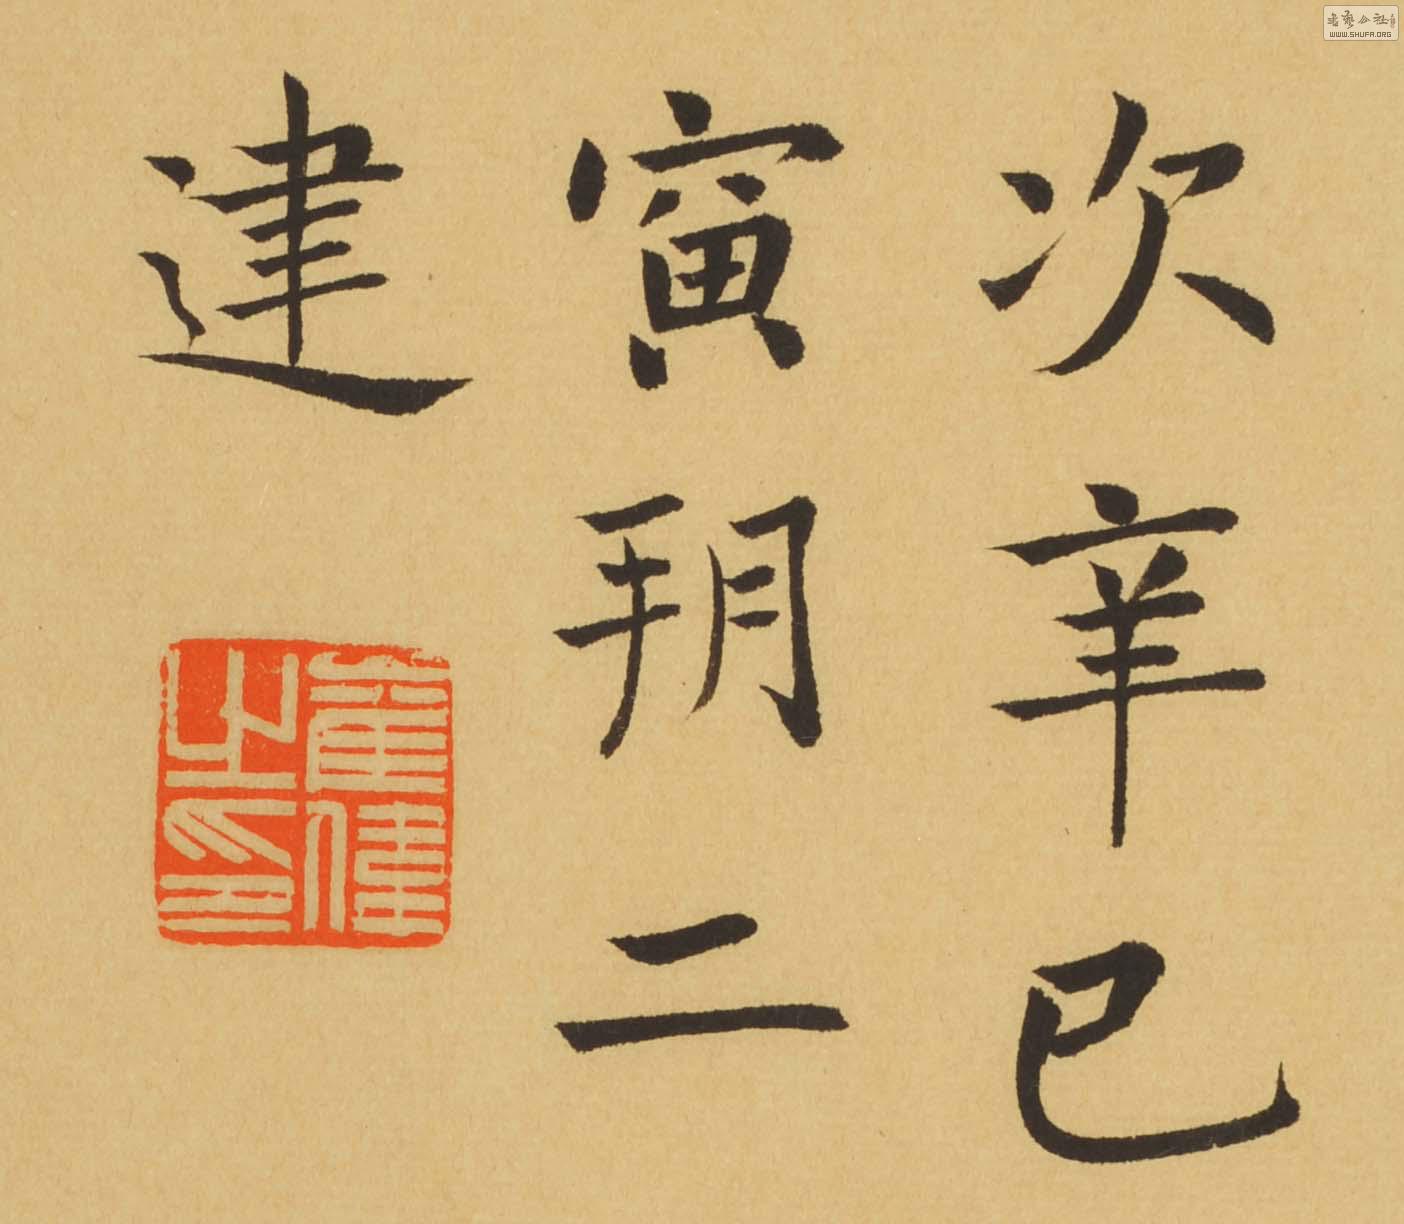 次辛巳
寅朔二
建
崔偉之印
書藝公社
WWW.SHUFA.ORG